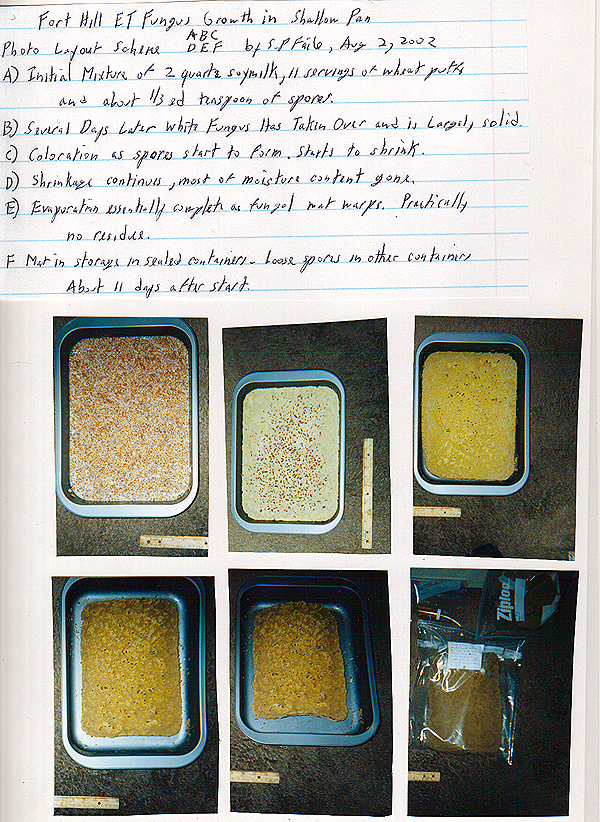 Fort Hill ET Fungus Growth in Shallow Pan
A B C
Photo Layout Scheme D E F by S.P Faile, Aug 2, 2002
A) Initial Mixture of 2 quarts soymilk, 11 servings of wheat puffs
and about 1/3 ed teaspoon of spores.
B) Several Days Later White Fungus Has Taken Over and is Largely solid.
C) Coloration as spores start to form. Starts to shrink.
D) Shrinkage continues, most of moisture content gone.
E) Evaporation essentially complete as fungal mat warps. Practically
no residue.
F Mat in storage in sealed containers - Loose spores in other containers
About 11 days after start.
Ziploc